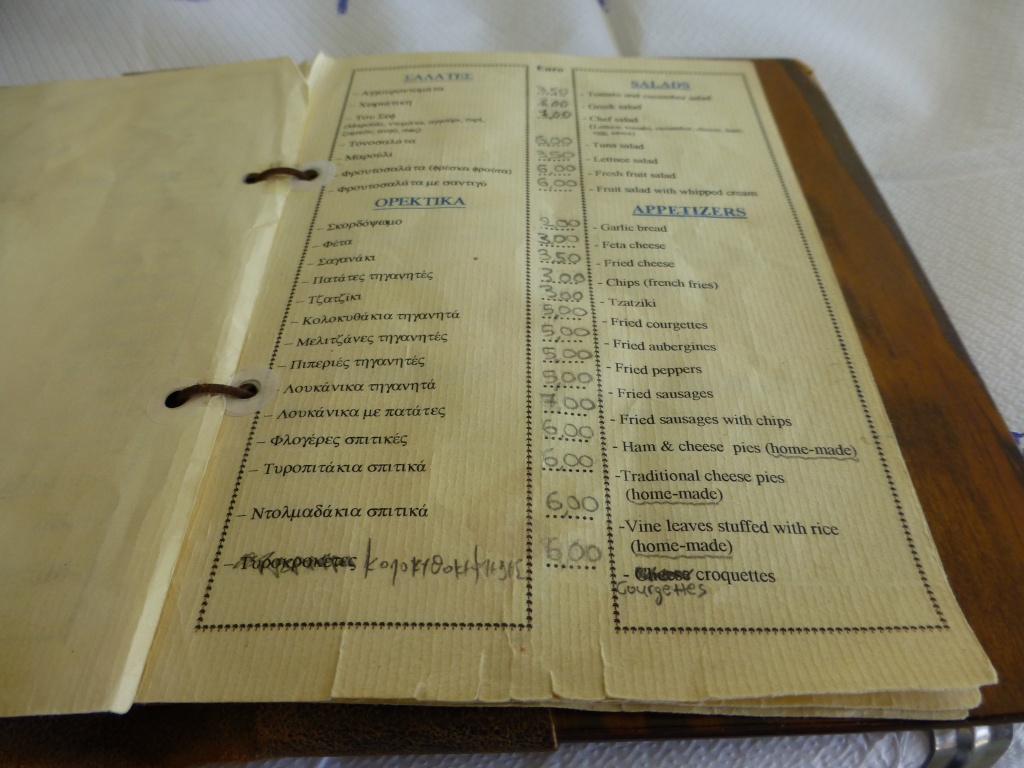 ΣΑΛΑΤΕΣ
– Αγγουροντομάτα
– Χωριάτικη
– Του Σεφ
– Τονοσαλάτα
– Μαρούλι
– Φρουτοσαλάτα (φρέσκα φρούτα)
– Φρουτοσαλάτα με σαντιγύ
ΟΡΕΚΤΙΚΑ
– Σκορδόψωμο
– Φέτα
– Σαγανάκι
– Πατάτες τηγανητές
– Τζατζίκι
– Κολοκυθάκια τηγανητά
– Μελιτζάνες τηγανητές
– Πιπεριές τηγανητές
– Λουκάνικα τηγανητά
– Λουκάνικα με πατάτες
– Φλογέρες σπιτικές
– Τυροπιτάκια σπιτικά
– Ντολμαδάκια σπιτικά
– Τυροκροκέτες
Euro
3,50
5,00
3,50
6,00
6,00
2,00
3,00
3,50
3,00
3,00
5,00
5,00
5,00
5,00
7,00
6,00
6,00
6,00
6,00
SALADS
- Tomato and cucumber salad
- Greek salad
- Chef salad
- Tuna salad
- Lettuce salad
- Fresh fruit salad
- Fruit salad with whipped cream
APPETIZERS
- Garlic bread
- Feta cheese
- Fried cheese
- Chips (french fries)
- Tzatziki
- Fried courgettes
- Fried aubergines
- Fried peppers
- Fried sausages
- Fried sausages with chips
- Ham & cheese pies (home-made)
-Traditional cheese pies
(home-made)
-Vine leaves stuffed with rice
(home-made)
- Cheese croquettes
Courgettes